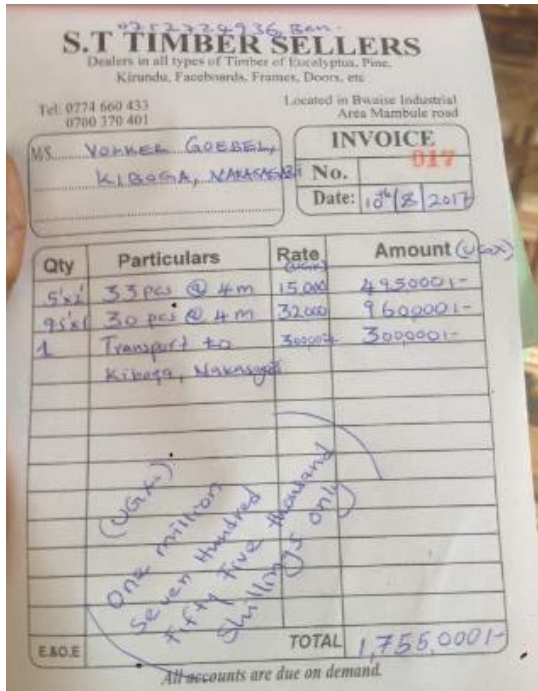 0752724936, Ben.
S.T TIMBER SELLERS
Dealers in all types of Timber of Eucalyptus, Pine,
Kirundu, Faceboards, Frames, Doors, etc
Tel: 0774 660 433
0700 370 401
Located in Bwaise Industrial
Area Mambule road
M/S VOKKER GOEBEL,
KIBOGA,
INVOICE
No. 017
Date: 10th/8/2017
Qty Particulars Rate (UGX) Amount (UGX)
33 pcs @ 4m 15,000 495000/-
30 pcs @ 4m 32000 960000/-
1 Transport to 300000/- 300000/-
Kiboga,
(UGX).
One million
Seven Hundred
Fifty Five thousand
Shillings only
E.&O.E TOTAL 1,755,000/-
All accounts are due on demand.